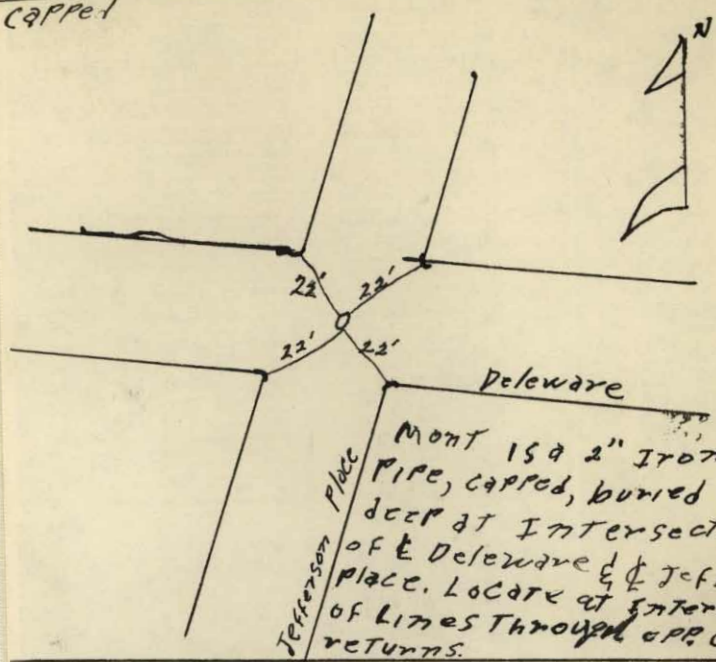 capped
N
22'
22'
22'
22'
Deleware
Jefferson Place
Mont is a 2" Iron
Pipe, capped, buried
deep at Intersect
of ℄ Deleware & ℄ Jeff
Place. Locate at Inter
of Lines Through opp.
returns.